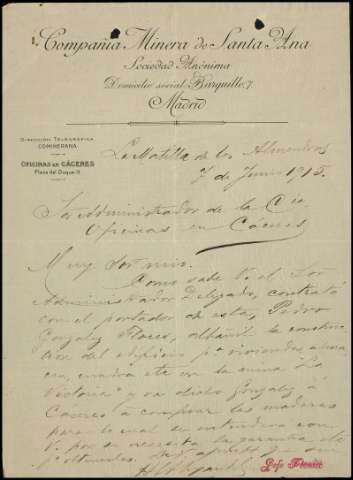 Compañía Minera de Santa Ana
Sociedad Anónima
Domicilio social: Barquillo, 7
Madrid
DIRECCIÓN TELEGRÁFICA
COMINERANA
OFICINAS EN CÁCERES
Plaza del Duque, 11
La Matilla de los Almendros
7 de Junio 1915.
Sor Administrador de la Cia
Oficinas en Cáceres
Muy Sor mio:
Como sabe V. el Sor
Administrador Delegado, contrató
con el portador de esta, Pedro
Gonzalez Flores, albañil la construc
cion del edificio pa viviendas,
cia, cuadra etc en la mina "La
Victoria" y va dicho Gonzalez á
Cáceres á comprar las maderas
para lo cual se entendera con
V. por si necesita la garantia de
Jefe Técnico